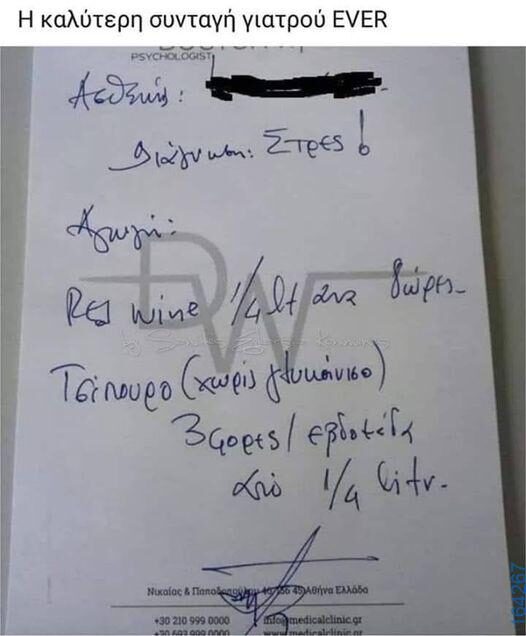 Η καλύτερη συνταγή γιατρού EVER
PSYCHOLOGIST
Ασθενής:
Διάγνωση: Στρες!
Αγωγή:
Red wine 1/4 lt ανα 8ώρες-
Τσίπουρο (χωρίς γλυκάνισο)
3φορες/εβδομάδα
από 1/4 litr.
Νικαίας & 45)Αθήνα Ελλάδα
+30 210 999 0000 info@medicalclinic.gr
+30 693 999 0000 www.medicalclinic.gr
164267